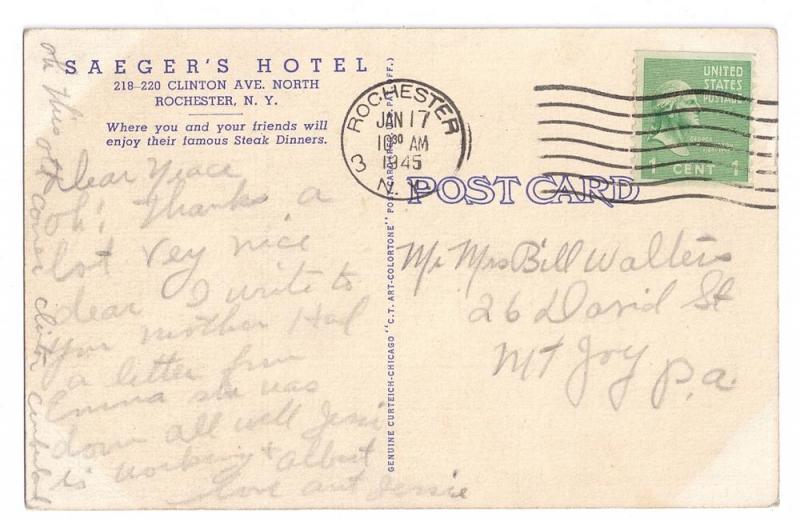 SAEGER'S HOTEL
218-220 CLINTON AVE. NORTH
ROCHESTER, N. Y.
Where you and your friends will
enjoy their famous Steak Dinners.
Dear
Oh! Thanks a
lot vey nice
dear I write to
your mother Had
a letter from
Emma she was
down all well Jessi
is working & Albert
love aut Jessie
GENUINE CURTEICH-CHICAGO "C.T. ART-COLORTONE" POST CARD (REG. U.S. PAT. OFF.)
ROCHESTER
JAN 17
10 30 AM
1945
3 N.Y.
UNITED
STATES
POSTAGE
GEORGE
WASHINGTON
1 CENT 1
POST CARD
Mr Mrs Bill Walters
26 David St
Mt Joy Pa